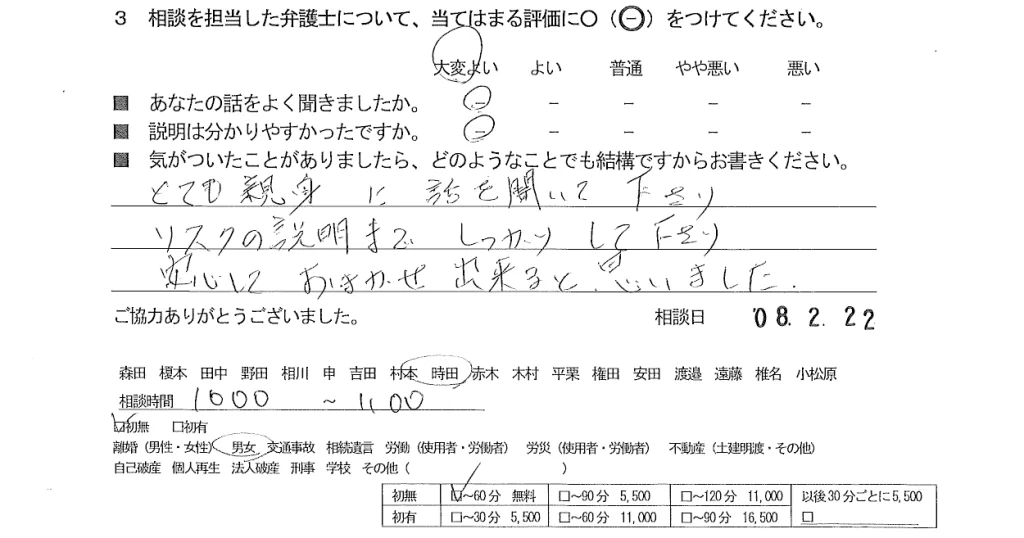 3 相談を担当した弁護士について、当てはまる評価に○（⊖）をつけてください。
大変よい よい 普通 やや悪い 悪い
■ あなたの話をよく聞きましたか。 － － － － －
■ 説明は分かりやすかったですか。 － － － － －
■ 気がついたことがありましたら、どのようなことでも結構ですからお書きください。
とても親身に話を聞いて下さり
リスクの説明まで しっかりして下さり
安心しておまかせ出来ると、思いました.
ご協力ありがとうございました。 相談日 '08. 2. 22
森田 榎本 田中 野田 相川 申 吉田 村本 時田 赤木 木村 平栗 権田 安田 渡邉 遠藤 椎名 小松原
相談時間 1000 ～ 1100
☑初無 □初有
離婚（男性・女性） 男女 交通事故 相続遺言 労働（使用者・労働者） 労災（使用者・労働者） 不動産（土建明渡・その他）
自己破産 個人再生 法人破産 刑事 学校 その他（ ）
初無 ☑～60分 無料 □～90分 5,500 □～120分 11,000 以後30分ごとに5,500
初有 □～30分 5,500 □～60分 11,000 □～90分 16,500 □